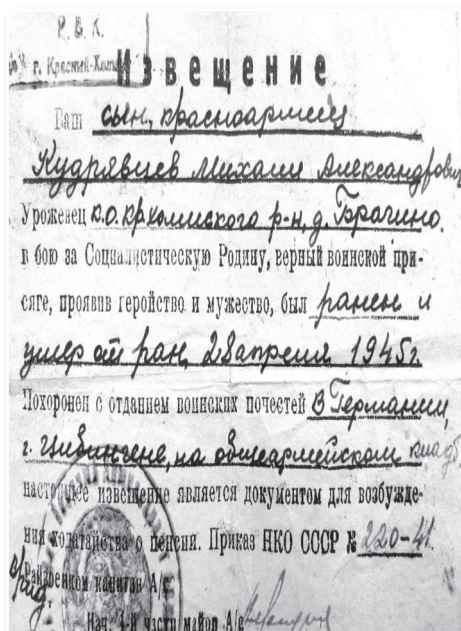 Р. В. К.
г. Красный-Холм
Извещение
Ваш сын, красноармеец
Кудрявцев Михаил Александрович
Уроженец К.О. Кр Холмского р-н, д. Брагино.
в бою за Социалистическую Родину, верный воинской при-
сяге, проявив геройство и мужество, был ранен и
умер от ран, 28 апреля 1945 г.
Похоронен с отданием воинских почестей в Германии,
г. Цибинген, на общеармейском кладб.
настоящее извещение является документом для возбужде-
ния ходатайства о пенсии. Приказ НКО СССР № 220-41.
Райвоенком капитан А/с
Нач. 1-й части майор А/с